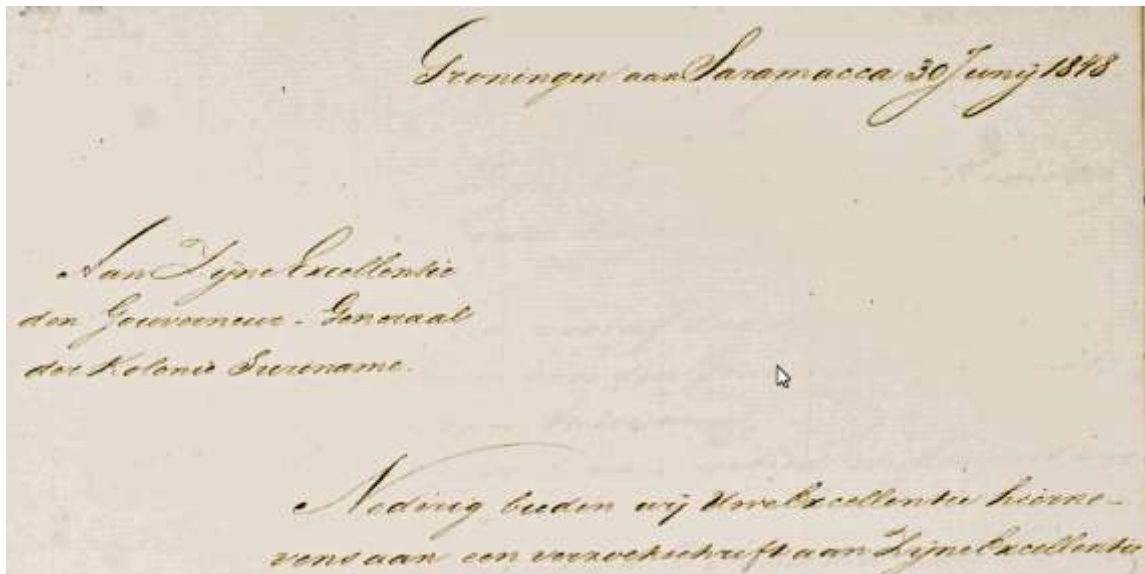 Groningen aan Saramacca 30 Junij 1848
Aan Zijne Excellentie
den Gouverneur-Generaal
der Kolonie Suriname.
Nederig bieden wij Uwe Excellentie hierne-
vens aan een verzoekschrift aan Zijne Excellentie